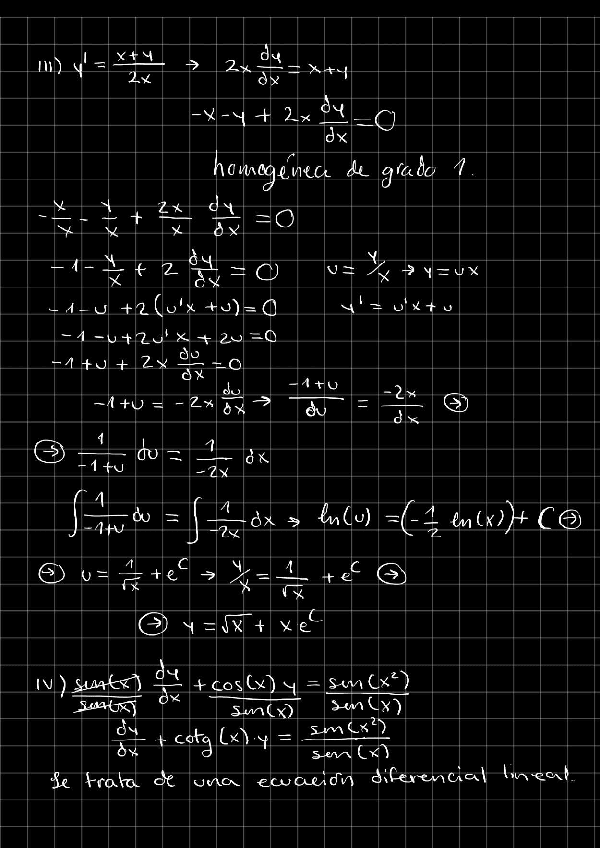 III) y' = (x+y)/(2x) → 2x dy/dx = x+y
-x-y + 2x dy/dx = 0
homogénea de grado 1.
-x/x - y/x + 2x/x dy/dx = 0
-1 - y/x + 2 dy/dx = 0    u = y/x → y = ux
-1-u+2(u'x+u)=0    y' = u'x+u
-1-u+2u'x+2u=0
-1+u+2x du/dx=0
-1+u = -2x du/dx → (-1+u)/du = -2x/dx ⇒
⇒ 1/(-1+u) du = 1/(-2x) dx
∫ 1/(-1+u) du = ∫ 1/(-2x) dx → ln(u) = (-1/2 ln(x)) + C ⇒
⇒ u = 1/√x + e^C → y/x = 1/√x + e^C ⇒
⇒ y = √x + x e^C
IV) sen(x)/sen(x) dy/dx + cos(x) y/sen(x) = sen(x²)/sen(x)
dy/dx + cotg(x)·y = sen(x²)/sen(x)
Se trata de una ecuación diferencial lineal.